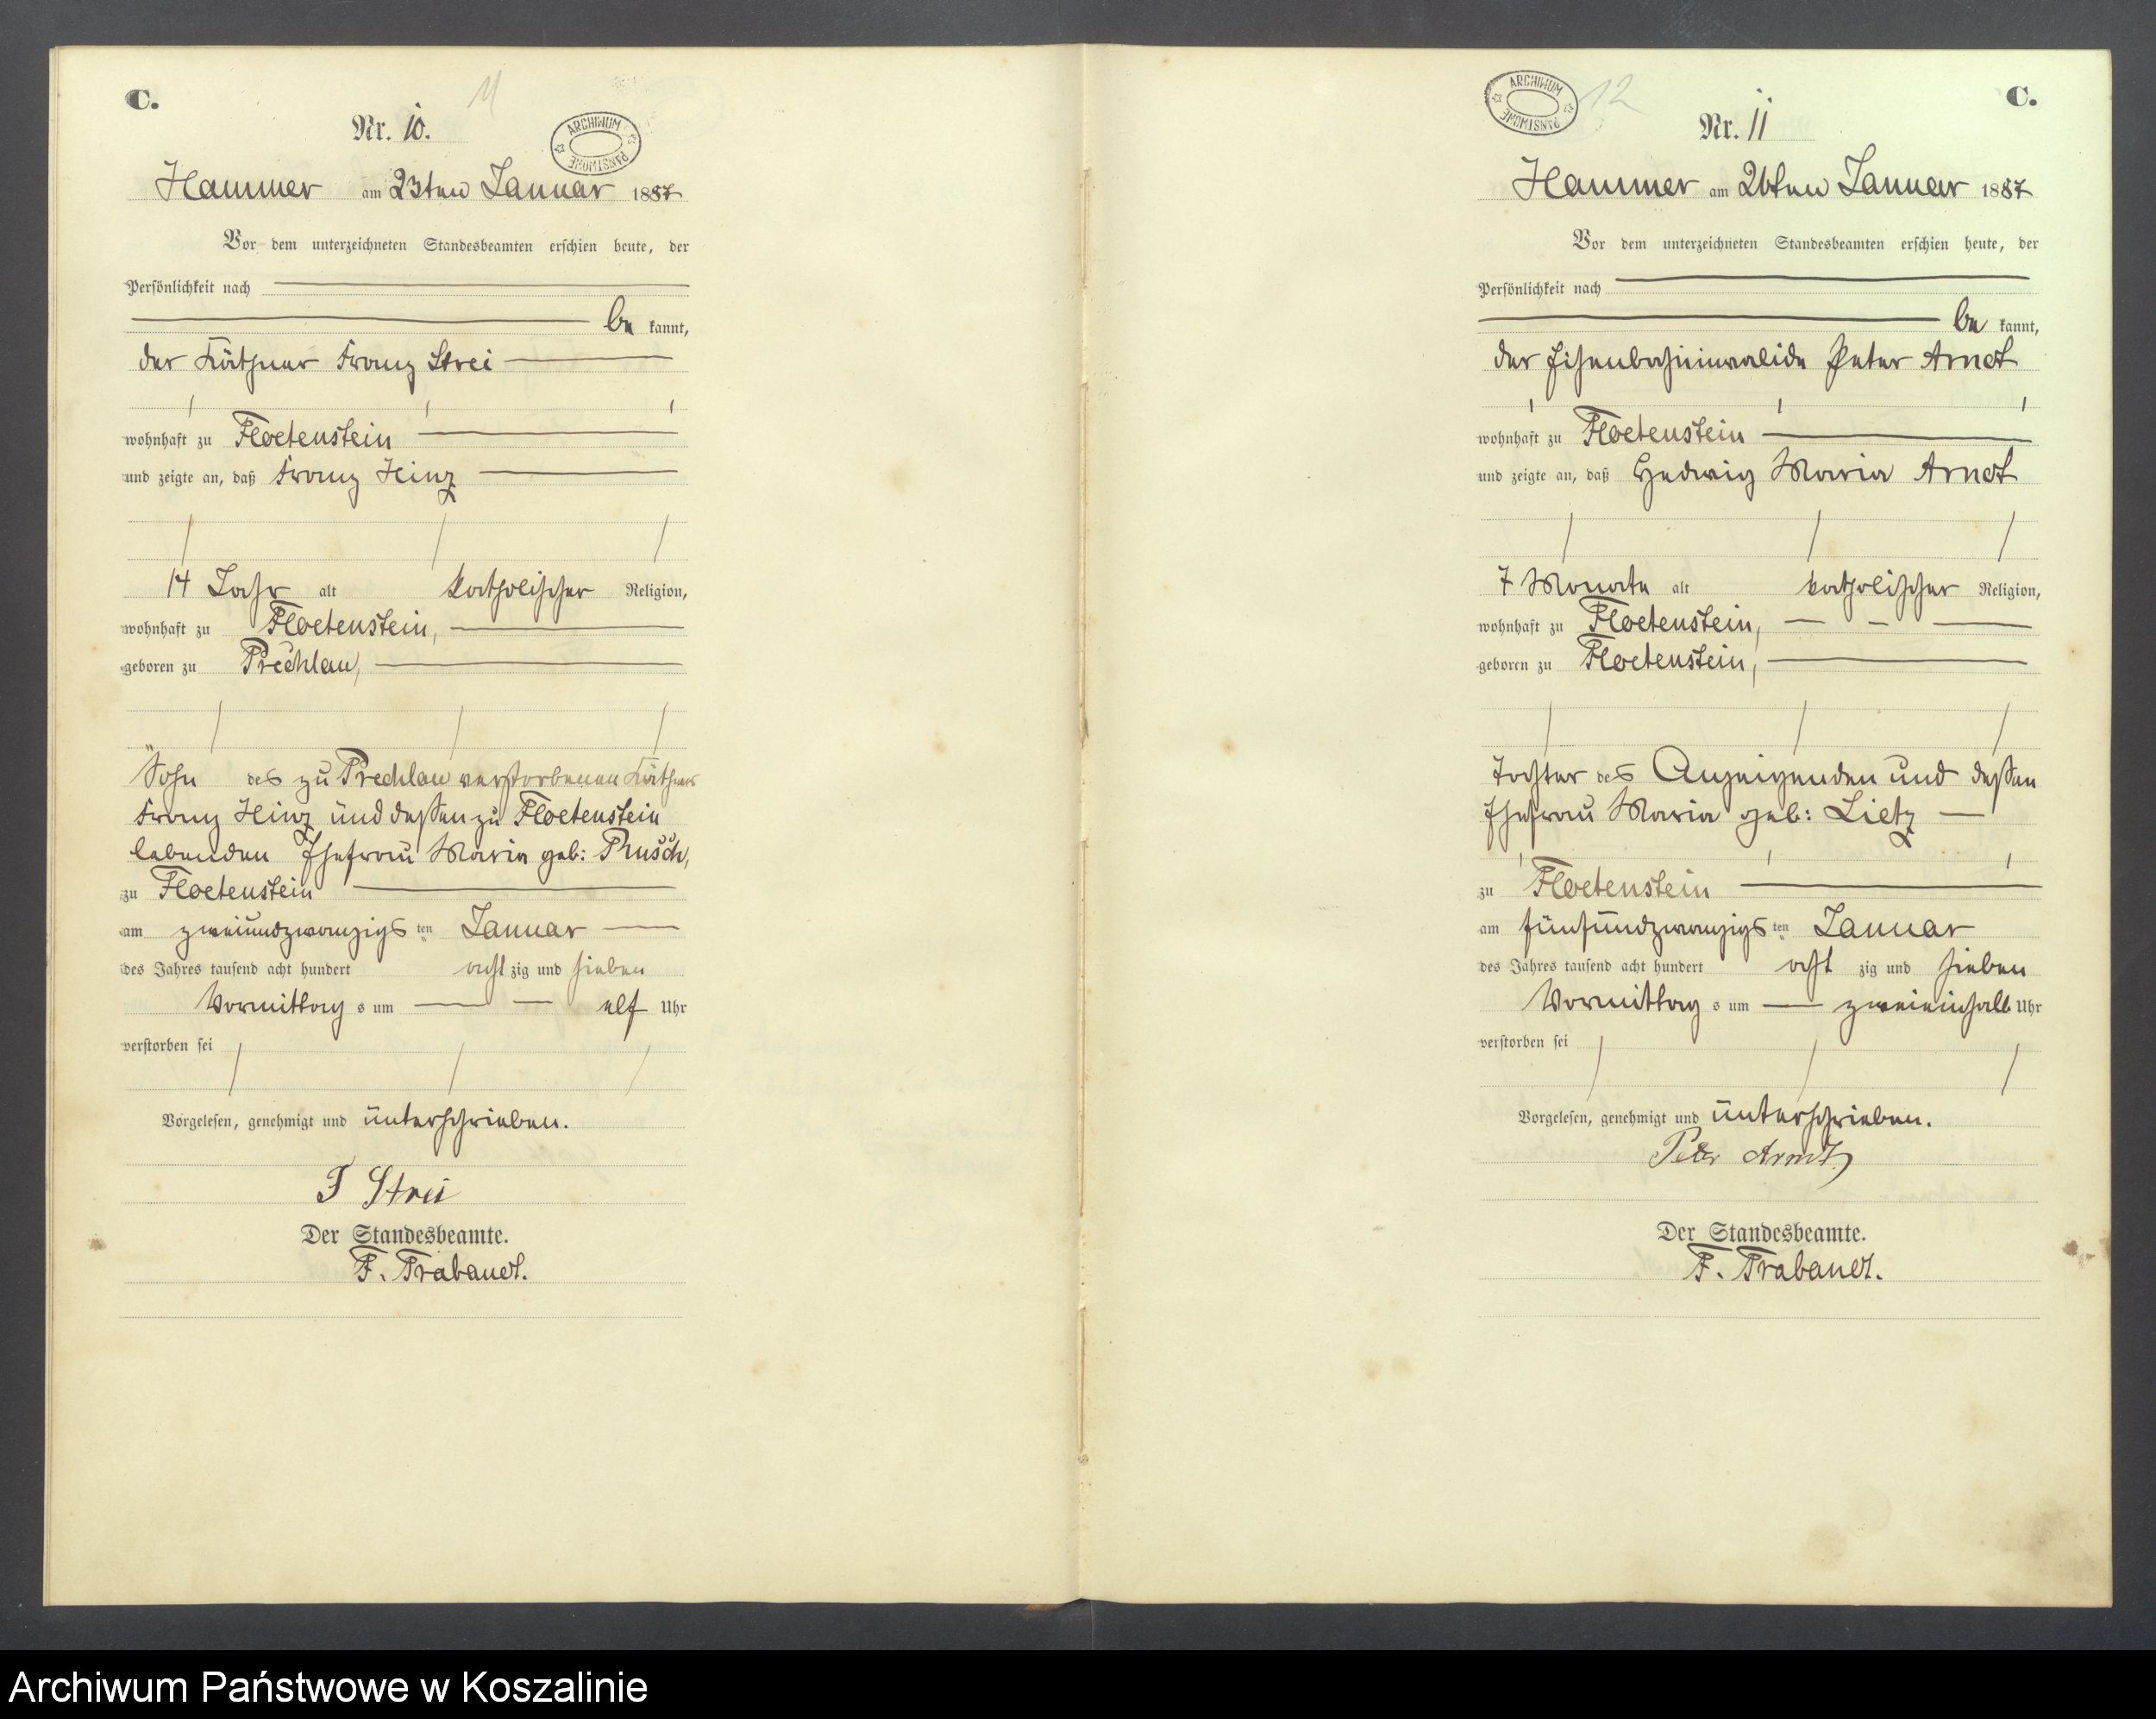 C.
11
Nr. 10.
ARCHIWUM PAŃSTWOWE
Hammer am 23ten Januar 1887
Vor dem unterzeichneten Standesbeamten erschien heute, der
Persönlichkeit nach
be kannt,
der Käthner Franz Strei
wohnhaft zu Floetenstein
und zeigte an, daß Franz Hinz
14 Jahr alt katholischer Religion,
wohnhaft zu Floetenstein,
geboren zu Prechlau,
Sohn des zu Prechlau verstorbenen Käthners
Franz Hinz und dessen zu Floetenstein
lebenden Ehefrau Maria geb: Prusch,
zu Floetenstein
am zweiundzwanzigs ten Januar
des Jahres tausend acht hundert acht zig und sieben
Vormittag s um elf Uhr
verstorben sei
Vorgelesen, genehmigt und unterschrieben.
F Strei
Der Standesbeamte.
F. Trabandt.
C.
12
ARCHIWUM PAŃSTWOWE
Nr. 11
Hammer am 26ten Januar 1887
Vor dem unterzeichneten Standesbeamten erschien heute, der
Persönlichkeit nach
be kannt,
der Eisenbahninvalide Peter Arndt
wohnhaft zu Floetenstein
und zeigte an, daß Hedwig Maria Arndt
7 Monate alt katholischer Religion,
wohnhaft zu Floetenstein,
geboren zu Floetenstein,
Tochter des Anzeigenden und dessen
Ehefrau Maria geb: Lietz
zu Floetenstein
am fünfundzwanzigs ten Januar
des Jahres tausend acht hundert acht zig und sieben
Vormittag s um zweieinhalb Uhr
verstorben sei
Vorgelesen, genehmigt und unterschrieben.
Peter Arndt
Der Standesbeamte.
F. Trabandt.
Archiwum Państwowe w Koszalinie